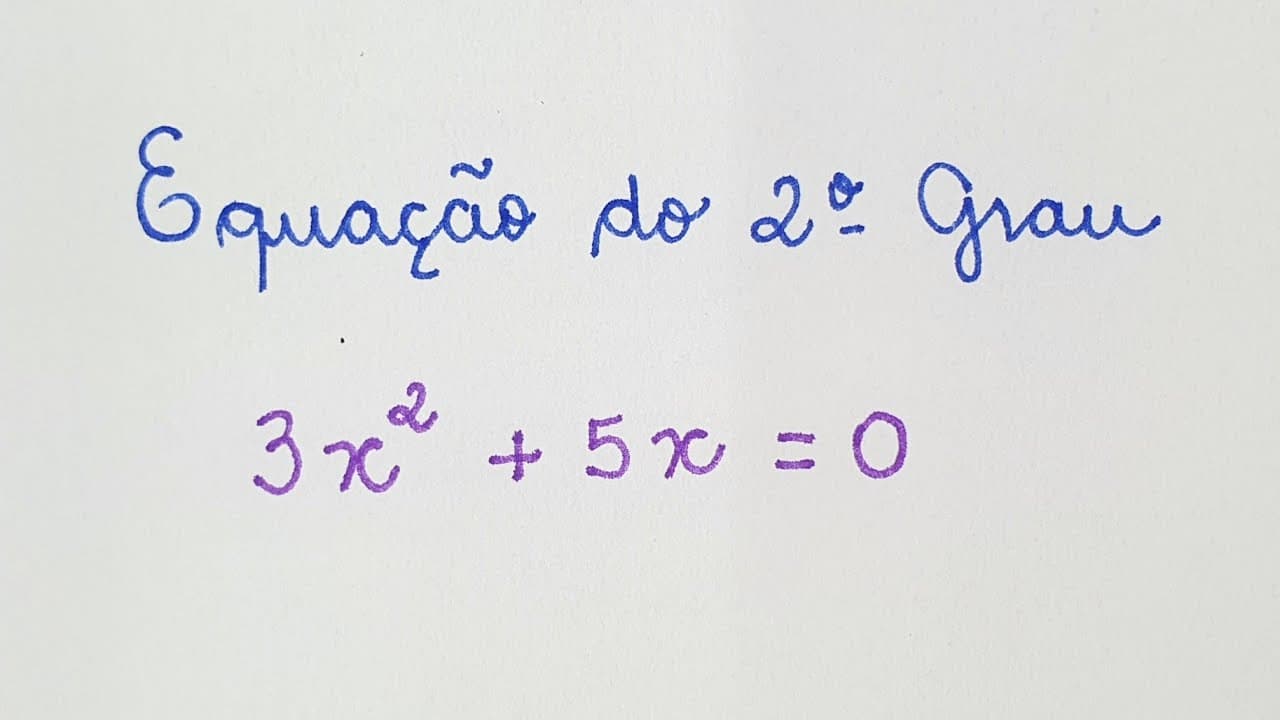 Equação do 2º Grau
3x² + 5x = 0